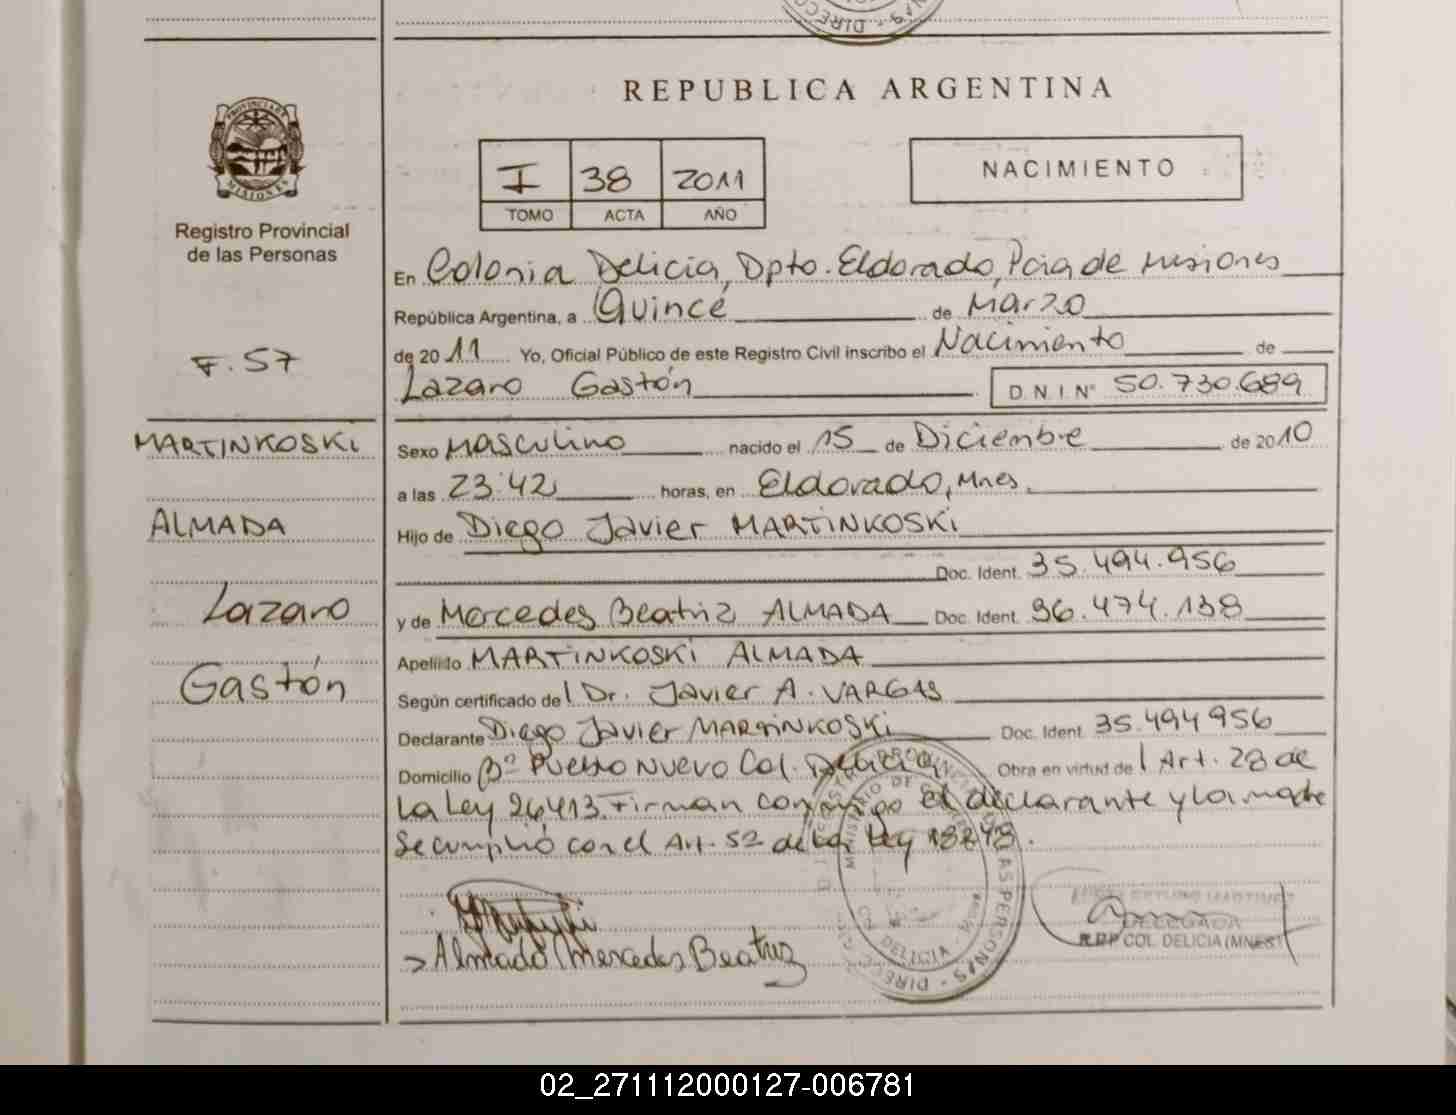 REPUBLICA ARGENTINA
PROVINCIA DE
MISIONES
Registro Provincial
de las Personas
I 38 2011
TOMO ACTA AÑO
NACIMIENTO
En Colonia Delicia, Dpto. Eldorado, Pcia de Misiones
República Argentina, a Quince de Marzo
F. 57
de 2011 Yo, Oficial Público de este Registro Civil inscribo el Nacimiento de
Lazaro Gastón D.N.I.Nº 50.730.689
MARTINKOSKI
ALMADA
Lazaro
Gastón
Sexo Masculino nacido el 15 de Diciembre de 2010
a las 23:42 horas, en Eldorado, Mnes.
Hijo de Diego Javier MARTINKOSKI
Doc. Ident. 35.494.956
y de Mercedes Beatriz ALMADA Doc. Ident. 36.474.138
Apellido MARTINKOSKI ALMADA
Según certificado del Dr. Javier A. VARGAS
Declarante Diego Javier MARTINKOSKI Doc. Ident. 35.494956
Domicilio Bº Pueblo Nuevo Col. Delicia Obra en virtud del Art. 28 de
La Ley 26413. Firman conmigo el declarante y la madre
Se cumplió con el Art. 52 de la Ley 18248.
> Almada Mercedes Beatriz
COL. DELICIA
DELEGADA
R.P.P COL. DELICIA (MNES)
02_271112000127-006781